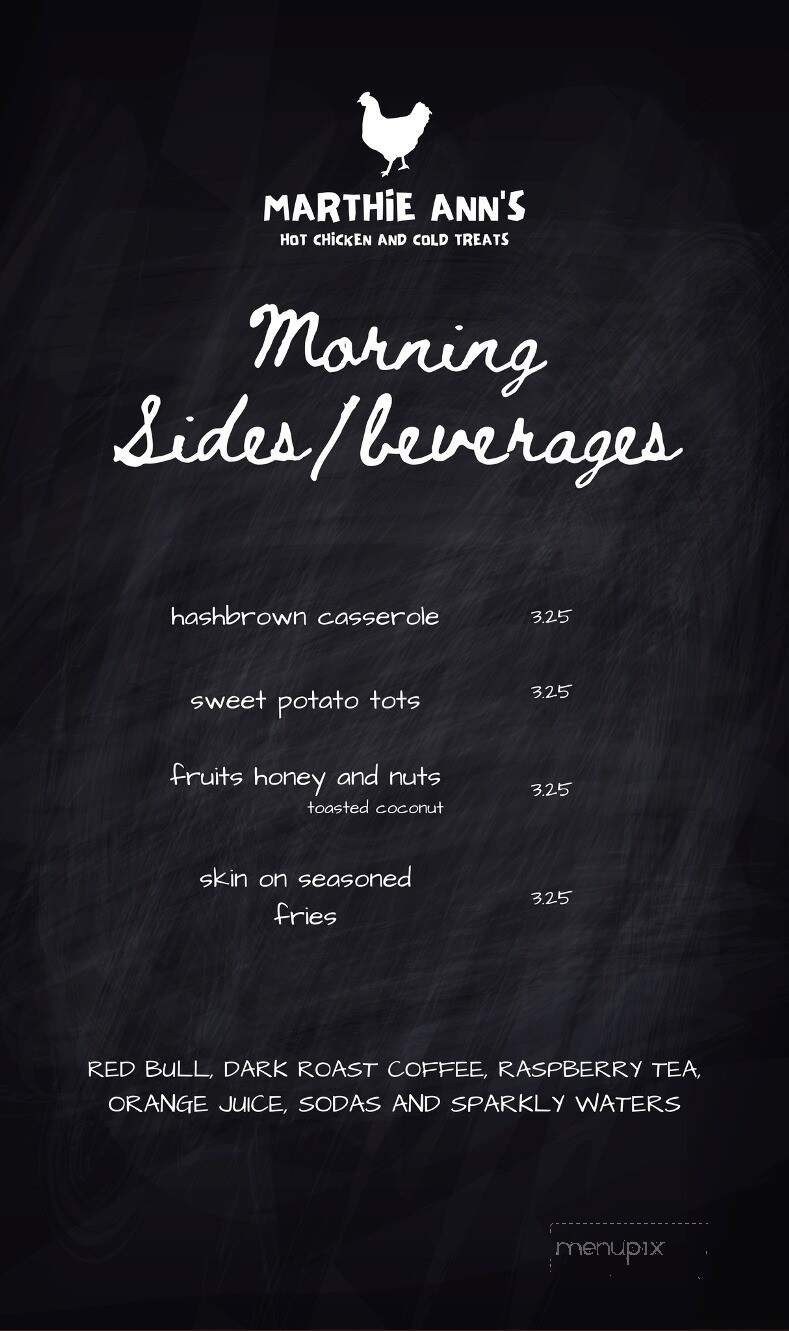 MARTHiE ANN'S
HOT CHiCKEN AND COLD TREATS
Morning
Sides/beverages
hashbrown casserole 3.25
sweet potato tots 3.25
fruits honey and nuts 3.25
toasted coconut
skin on seasoned
fries 3.25
RED BULL, DARK ROAST COFFEE, RASPBERRY TEA,
ORANGE JUICE, SODAS AND SPARKLY WATERS
menupix